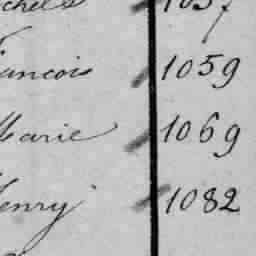 chels 1057
ancois 1059
Marie 1069
Henry 1082